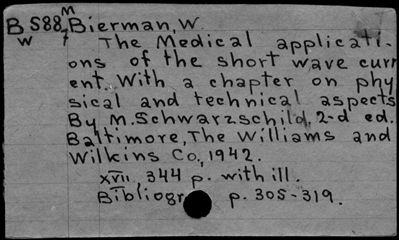 M
B S88, Bierman, W.
w t The Medical applicati-
ons of the short wave curr
ent. With a chapter on phy
sical and technical aspects
By M. Schwarzschild, 2-d ed.
Baltimore, The Williams and
Wilkins Co., 1942.
xvii, 344 p. with ill.
Bibliogr p. 305-319.